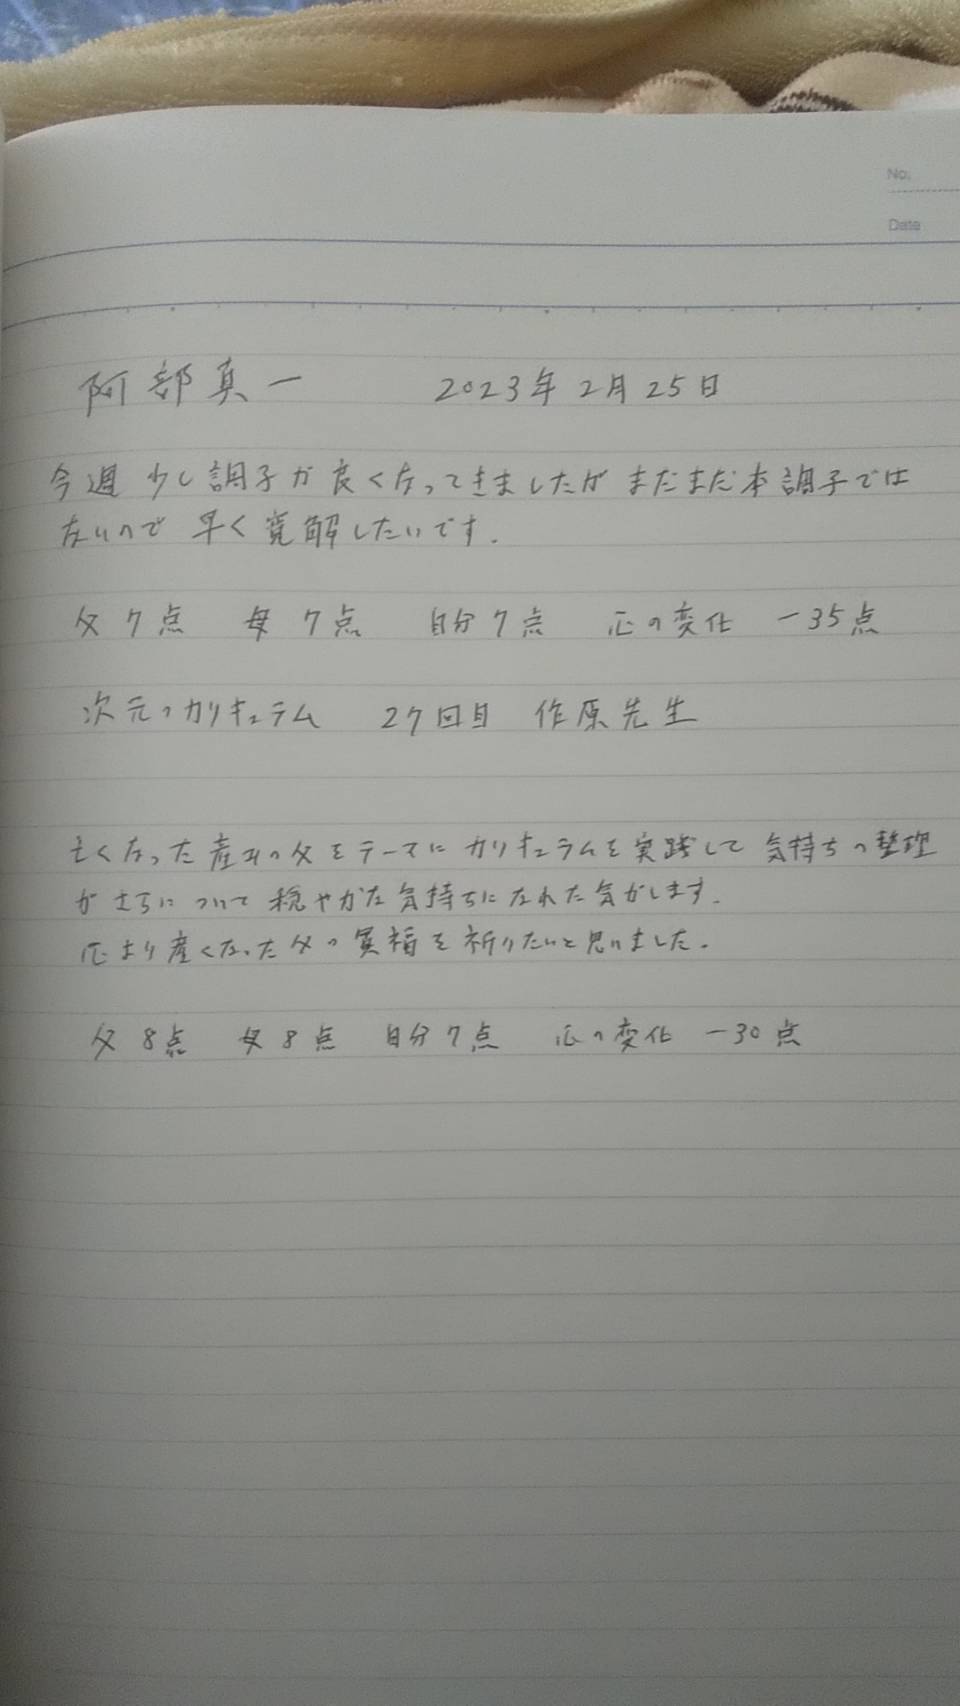 No.
Date
阿部真一 2023年2月25日
今週 少し調子が良くなってきましたが まだまだ本調子では
ないので 早く寛解したいです.
父 7点 母 7点 自分 7点 心の変化 -35点
次元のカリキュラム 27回目 作原先生
亡くなった産みの父をテーマにカリキュラムを実践して 気持ちの整理
がさらに ついて 穏やかな気持ちになれた気がします.
心より産くなった父の冥福を祈りたいと思いました.
父 8点 母 8点 自分 7点 心の変化 -30点